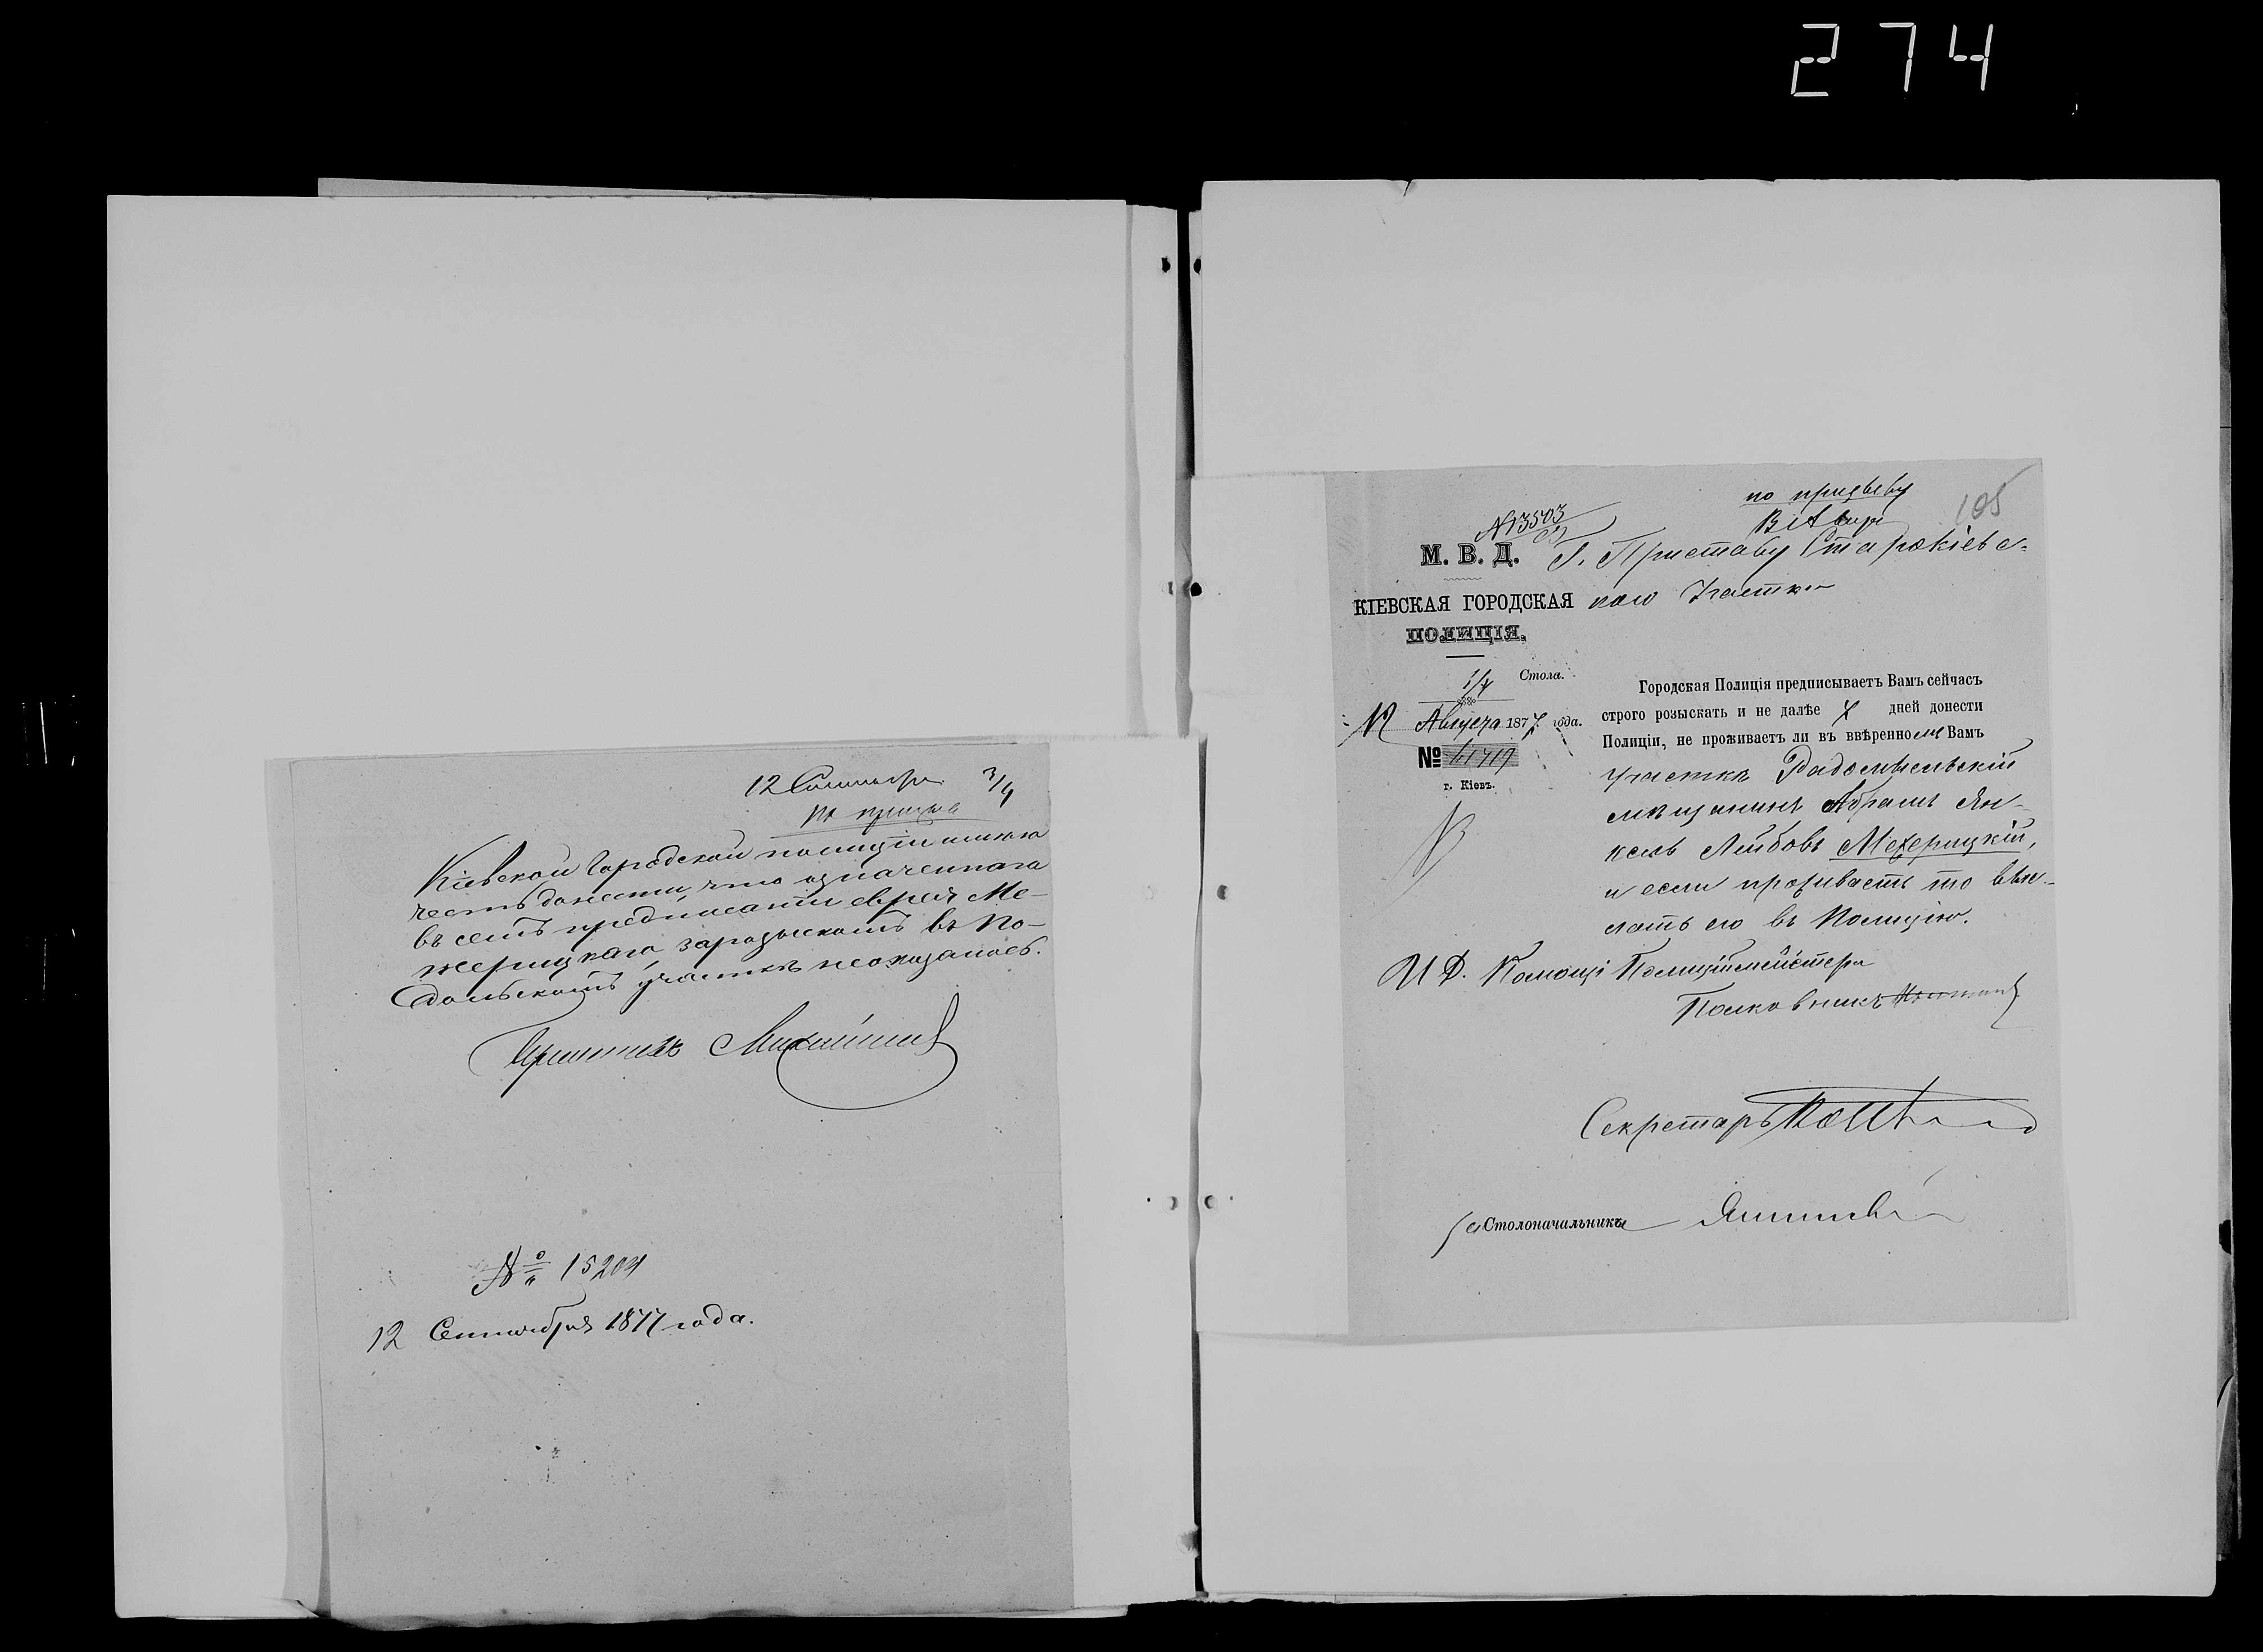 274
12 Сентября 3/4
по призыв
Кіевской Городской полиціи имѣю
честь донести, что означеннаго
въ семъ предписаніи еврея Ме-
жерицкаго, за розыскомъ въ По-
дольскомъ участкѣ не оказалось.
Приставъ
№ 15204
12 Сентября 1877 года.
по призыву
105
№13503
М. В. Д. Г. Приставу Старокіевс-
КІЕВСКАЯ ГОРОДСКАЯ каго Участка
ПОЛИЦІЯ.
Стола.
Августа 1877 года.
№ 41719
г. Кіевъ.
Городская Полиція предписываетъ Вамъ сейчасъ
строго розыскать и не далѣе 7 дней донести
Полиціи, не проживаетъ ли въ ввѣренномъ Вамъ
участкѣ Радомысльскій
мѣщанинъ Абрамъ Ян-
кель Лейбовъ Межерицкій,
и если проживаетъ то выс-
лать его въ Полицію.
И Д. Помощ. Полиціймейстера
Полковникъ
Секретарь
За Столоначальника